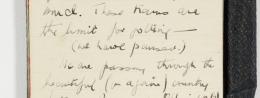 and. These trains are
the limit for jolting —
(we have paused.)
We are passing through the
beautiful (in again) country